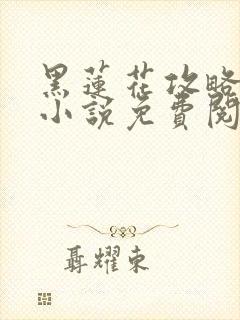 黑蓮花攻略
小說免費閱
聶耀東